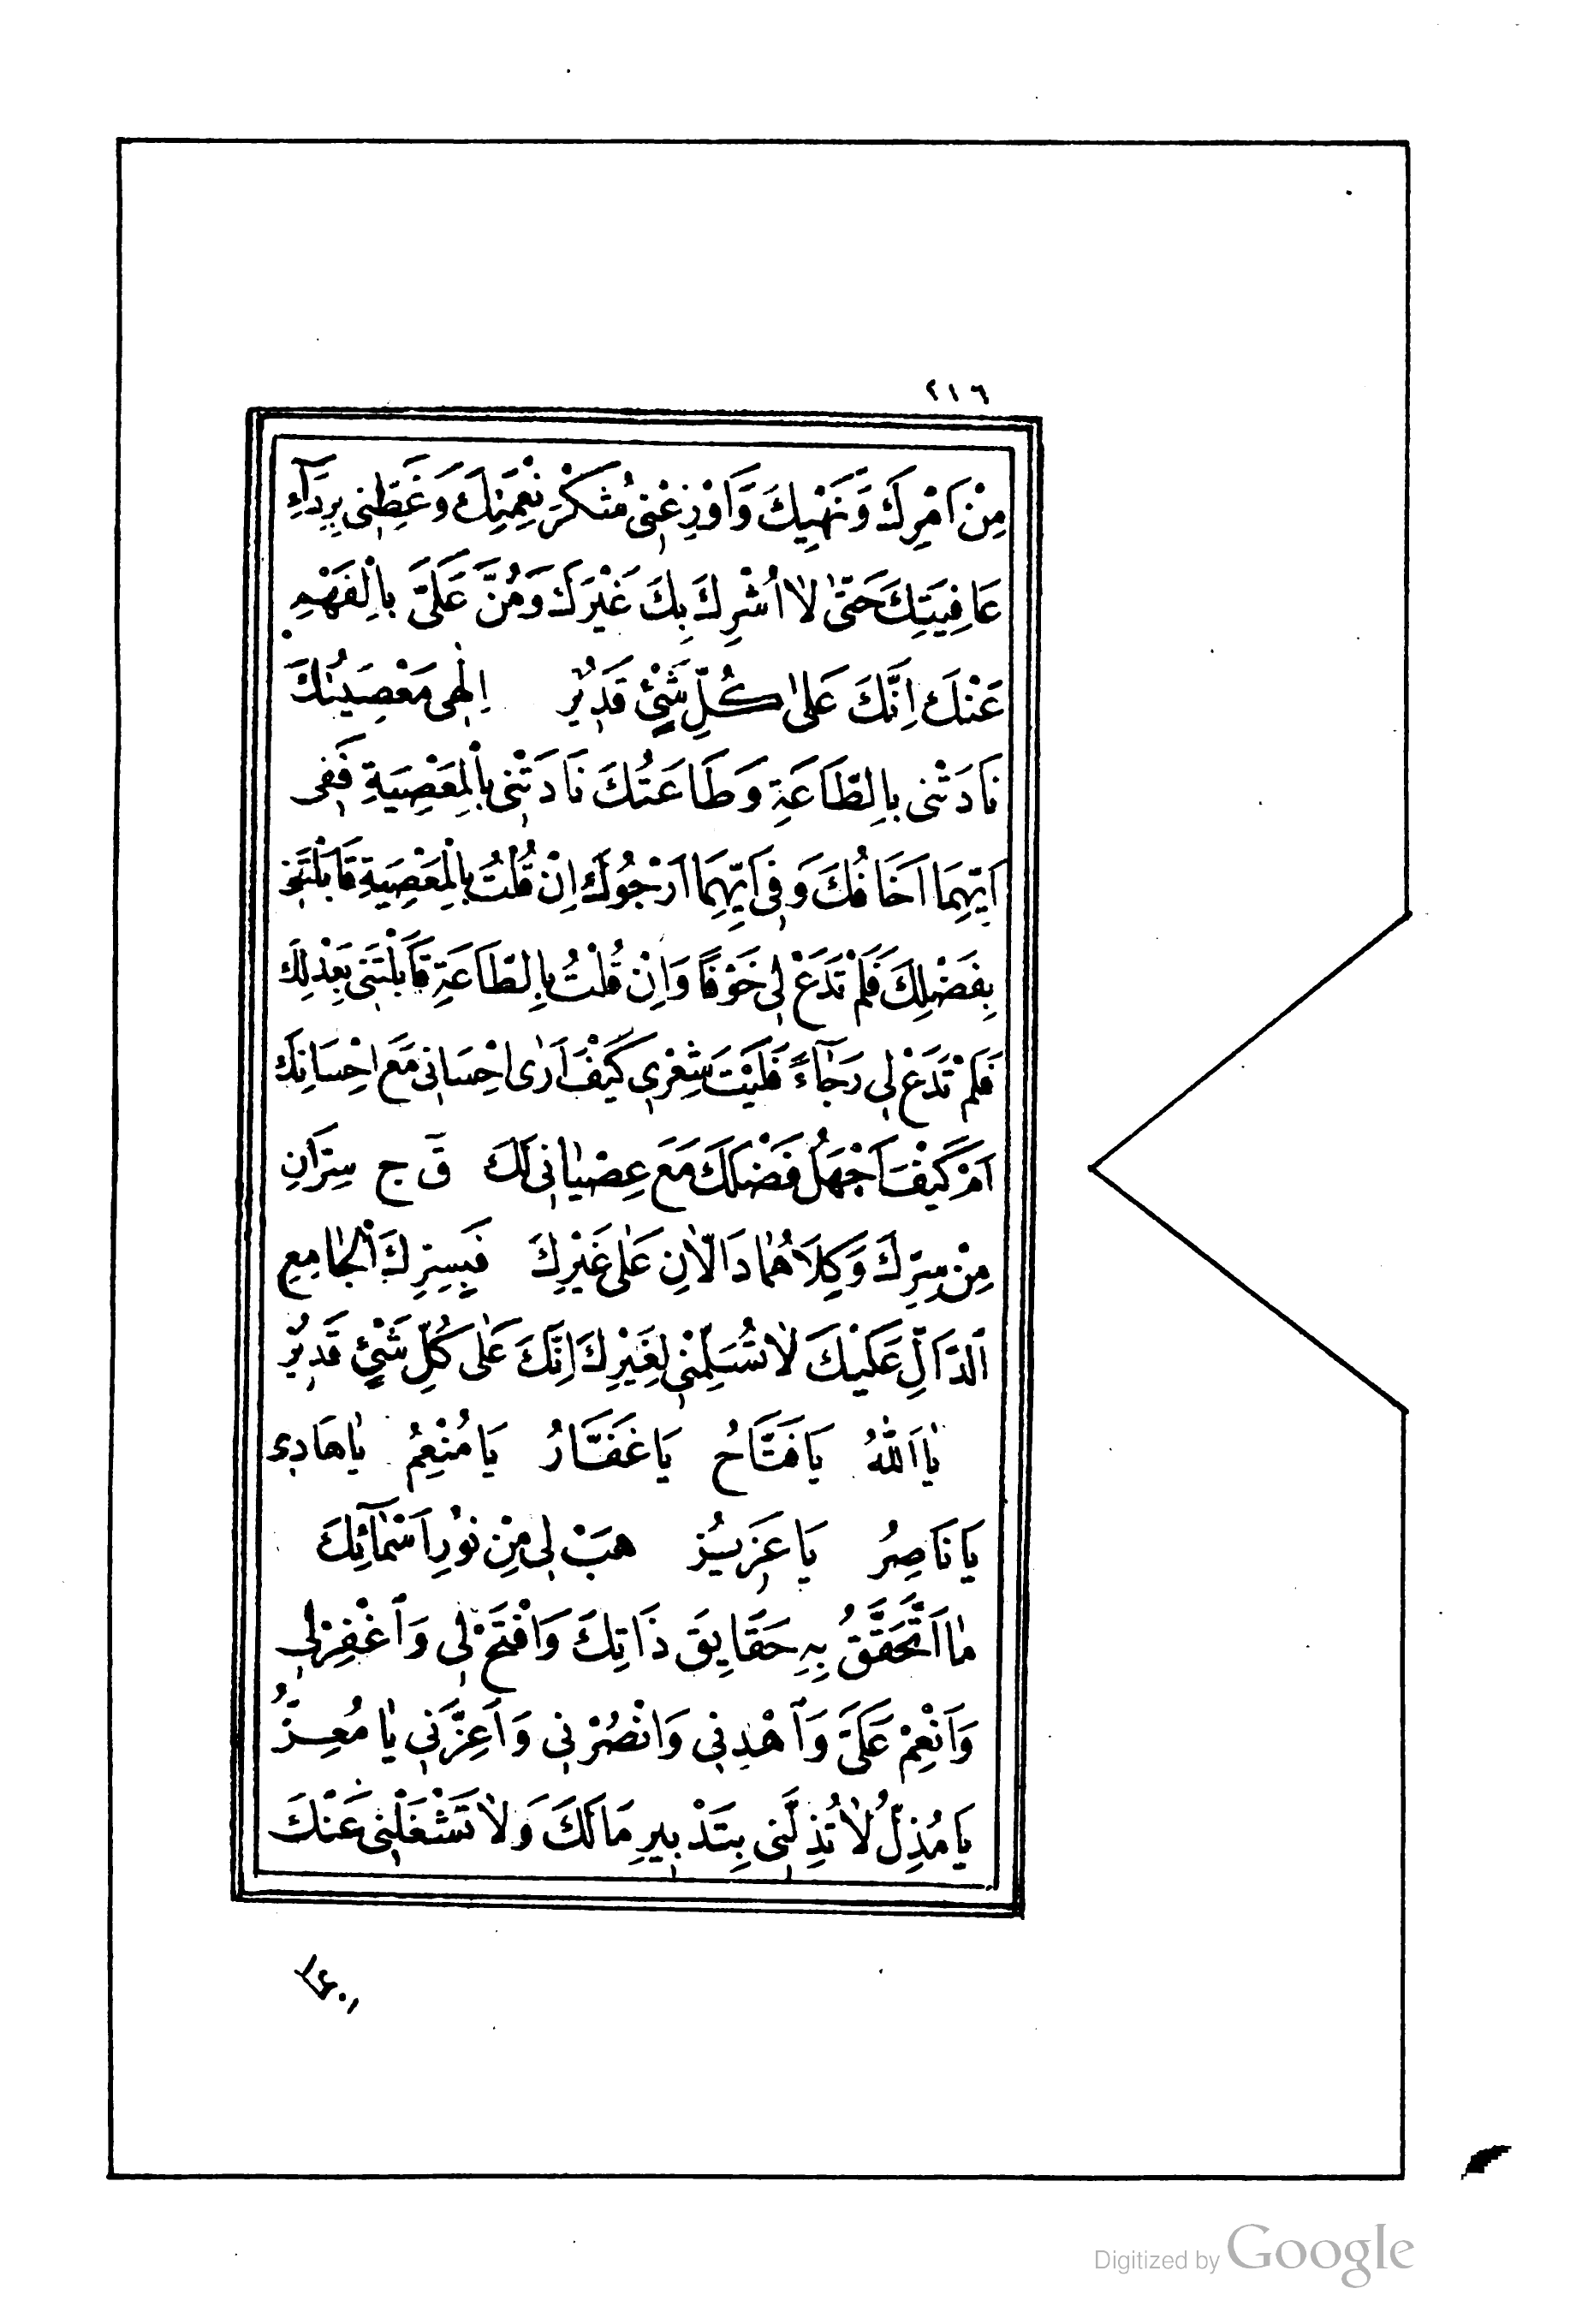 ٢١٦
مِنْ اَمْرِكَ وَنَهْيِكَ وَاَوْزِعْنِى شُكْرَ نِعْمَتِكَ وَغَطِّنِى بِرِدَآءِ
عَافِيَتِكَ حَتّٰى لَا اُشْرِكَ بِكَ غَيْرَكَ وَمُنَّ عَلَىَّ بِالْفَهْمِ
عَنْكَ اِنَّكَ عَلٰى كُلِّ شَيْئٍ قَدِيْرٌ اِلٰهِى مَعْصِيَتُكَ
نَادَتْنِى بِالطَّاعَةِ وَطَاعَتُكَ نَادَتْنِى بِالْمَعْصِيَةِ فَفِى
اَيِّهِمَا اَخَافُكَ وَفِى اَيِّهِمَا اَرْجُوكَ اِنْ قُلْتُ بِالْمَعْصِيَةِ قَابَلْتَنِى
بِفَضْلِكَ فَلَمْ تَدَعْ لِى خَوْفًا وَاِنْ قُلْتُ بِالطَّاعَةِ قَابَلْتَنِى بِعَدْلِكَ
فَلَمْ تَدَعْ لِى رَجَآءً فَلَيْتَ شِعْرِى كَيْفَ اَرٰى اِحْسَانِى مَعَ اِحْسَانِكَ
اَمْ كَيْفَ اَجْهَلُ فَضْلَكَ مَعَ عِصْيَانِى لَكَ قٓ ج سِرَّانِ
مِنْ سِرِّكَ وَكِلَاهُمَا دَالَّانِ عَلٰى غَيْرِكَ فَبِسِرِّكَ الْجَامِعِ
اَلدَّالِّ عَلَيْكَ لَا تُسَلِّمْنِى لِغَيْرِكَ اِنَّكَ عَلٰى كُلِّ شَيْئٍ قَدِيْرٌ
يَا اَللّٰهُ يَا فَتَّاحُ يَا غَفَّارُ يَا مُنْعِمُ يَا هَادِى
يَا نَاصِرُ يَا عَزِيْزُ هَبْ لِى مِنْ نُوْرِ اَسْمَآئِكَ
مَا اَتَحَقَّقُ بِهِ حَقَايِقَ ذَاتِكَ وَافْتَحْ لِى وَاغْفِرْلِى
وَاَنْعِمْ عَلَىَّ وَاهْدِنِى وَانْصُرْنِى وَاَعِزَّنِى يَا مُعِزُّ
يَا مُذِلُّ لَا تُذِلَّنِى بِتَدْبِيرِ مَا لَكَ وَلَا تَشْغَلْنِى عَنْكَ
Digitized by Google